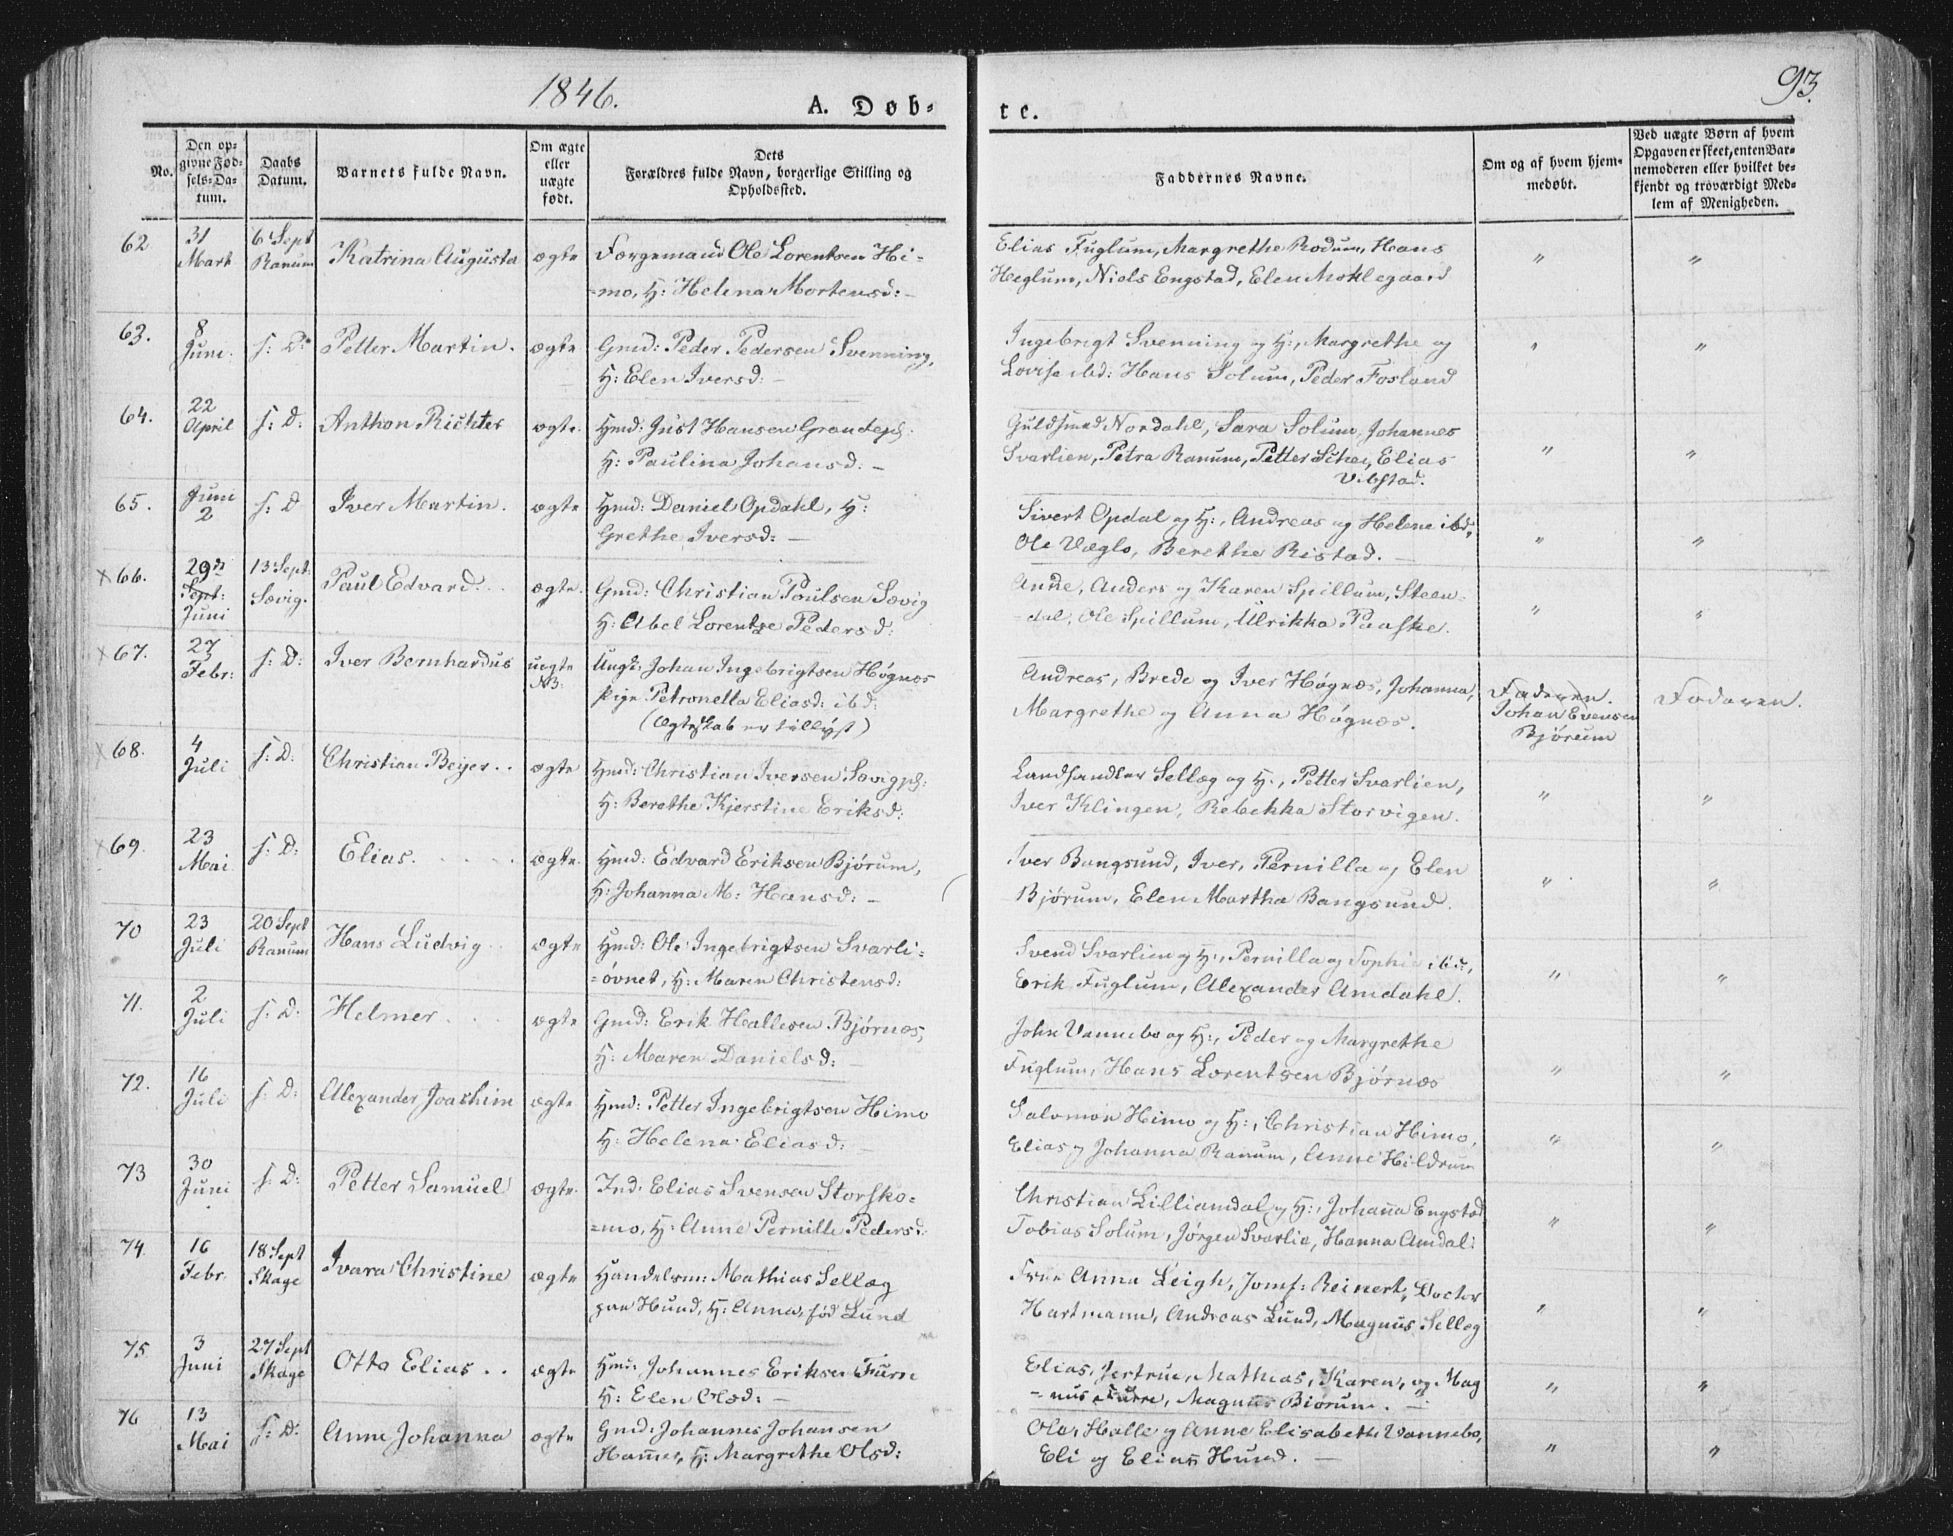 1846.
A. Døb-
te.
93.
No.
Den op-
givne Fød-
sels-Da-
tum.
Daabs
Datum.
Barnets fulde Navn.
Om ægte
eller
uægte
født.
Dets
Forældres fulde Navn, borgerlige Stilling og
Opholdssted.
Faddernes Navne.
Om og af hvem hjem-
medøbt.
Ved uægte Børn af hvem
Opgaven er skeet, enten Bar-
nemoderen eller hvilket be-
kjendt og troværdigt Med-
lem af Menigheden.
62 31 Mart 6 Sept Ranum Katrina Augusta ægte Færgemand Ole Lorentsen Hi-
=mo, H: Helena Mortensd: –
Elias Fuglum, Margrethe Rodum, Hans
Heglum, Niels Engstad, Elen Moklegaard " "
63. 8 Juni. s: D: Petter Martin. ægte Gmd: Peder Pedersen Svenning,
H: Elen Iversd: –
Ingebrigt Svenning og H:, Margrethe og
Lovise ibd: Hans Solum, Peder Fosland " "
64. 22 April s: D: Anthon Richter ægte. Hmd: Just Hansen
H: Paulina Johansd: –
Guldsmed Nordahl, Sara Solum, Johannes
Svarlien, Petra Ranum, Petter Schei, Elias
Vibstad. " "
65. Juni 2 s: D Iver Martin. ægte Hmd: Daniel Opdahl, H:
Grethe Iversd: –
Sivert Opdal og H:, Andreas og Helene ibd,
Ole Væglo, Berethe Ristad. – " "
x 66. 29de Sept: Juni 13 Sept: Sævig. Paul Edvard. ægte. Gmd: Christian Poulsen Sævig
H: Abel Lorentze Pedersd:
Anne, Anders og Karen Spillum, Steen-
=dal, Ole Spillum, Ulrikka Paaske. " "
x 67. 27 Febr: s: D: Iver Bernhardus uægte NB: Ungk: Johan Ingebrigtsen Høgnæs
Pige Petronella Eliasd: ibd:
(Ægteskab er tillyst)
Andreas, Brede og Iver Høgnæs, Johanna,
Margrethe og Anna Høgnæs.
Faderen.
Johan Evensen
Bjørum
Faderen.
x 68. 4 Juli s: D: Christian Beyer.. ægte Hmd: Christian Iversen Sævigpl:
H: Berethe Kjerstine Eriksd:
Landhandler Sellæg og H:, Petter Svarlien,
Iver Klingen, Rebekka Storvigen. " "
x 69. 23 Mai s: D: Elias. ægte. Hmd: Edvard Eriksen Bjørum,
H: Johanna M: Hansd: –
Iver Bangsund, Iver, Pernilla og Elen
Bjørum, Elen Martha Bangsund. " "
70 23 Juli 20 Sept Ranum Hans Ludvig .. ægte Hmd: Ole Ingebrigtsen Svarli-
=øvnet, H: Maren Christensd:
Svend Svarlien og H:, Pernilla og Sophie ibd,
Erik Fuglum, Alexander Amdahl. " "
71. 2 Juli s: D: Helmer ... ægte Gmd: Erik Hallesen Bjørnæs,
H: Maren Danielsd: –
John Vannebo og H:, Peder og Margrethe
Fuglum, Hans Lorentsen Bjørnæs " "
72. 16 Juli s: D: Alexander Joachim ægte Hmd: Petter Ingebrigtsen Himo
H: Helena Eliasd: –
Salomon Himo og H:, Christian Himo,
Elias og Johanna Ranum, Anne Hildrum " "
73 30 Juni s: D: Petter Samuel ægte. Ind: Elias Svensen Storsko-
=mo, H: Anne Pernille Pedersd:
Christian Lilliamdal og H:, Johanna Engstad
Tobias Solum, Jørgen Svarlia, Hanna Amdal: " "
74. 16 Febr. 18 Sept Skage Ivara Christine ægte Handelsm: Mathias Sellæg
paa Hund, H: Anna, fød Lund
Frue Anna Leigh, Jomf: Reinert, Doctor
Hartmann, Andreas Lund, Magnus Sellæg " "
75 3 Juni 27 Sept Skage Otto Elias .. ægte Hmd: Johannes Eriksen Furre
H: Elen Olsd: –
Elias, Jertrue, Mathias, Karen, og Mag
=nus Furre, Magnus Biørum. – " "
76 13 Mai s: D: Anne Johanna ægte Gmd: Johannes Johansen
Hammer, H: Margrethe Olsd:
Ole, Halle og Anne Elisabeth Vannebo,
Eli og Elias Hund. – " "